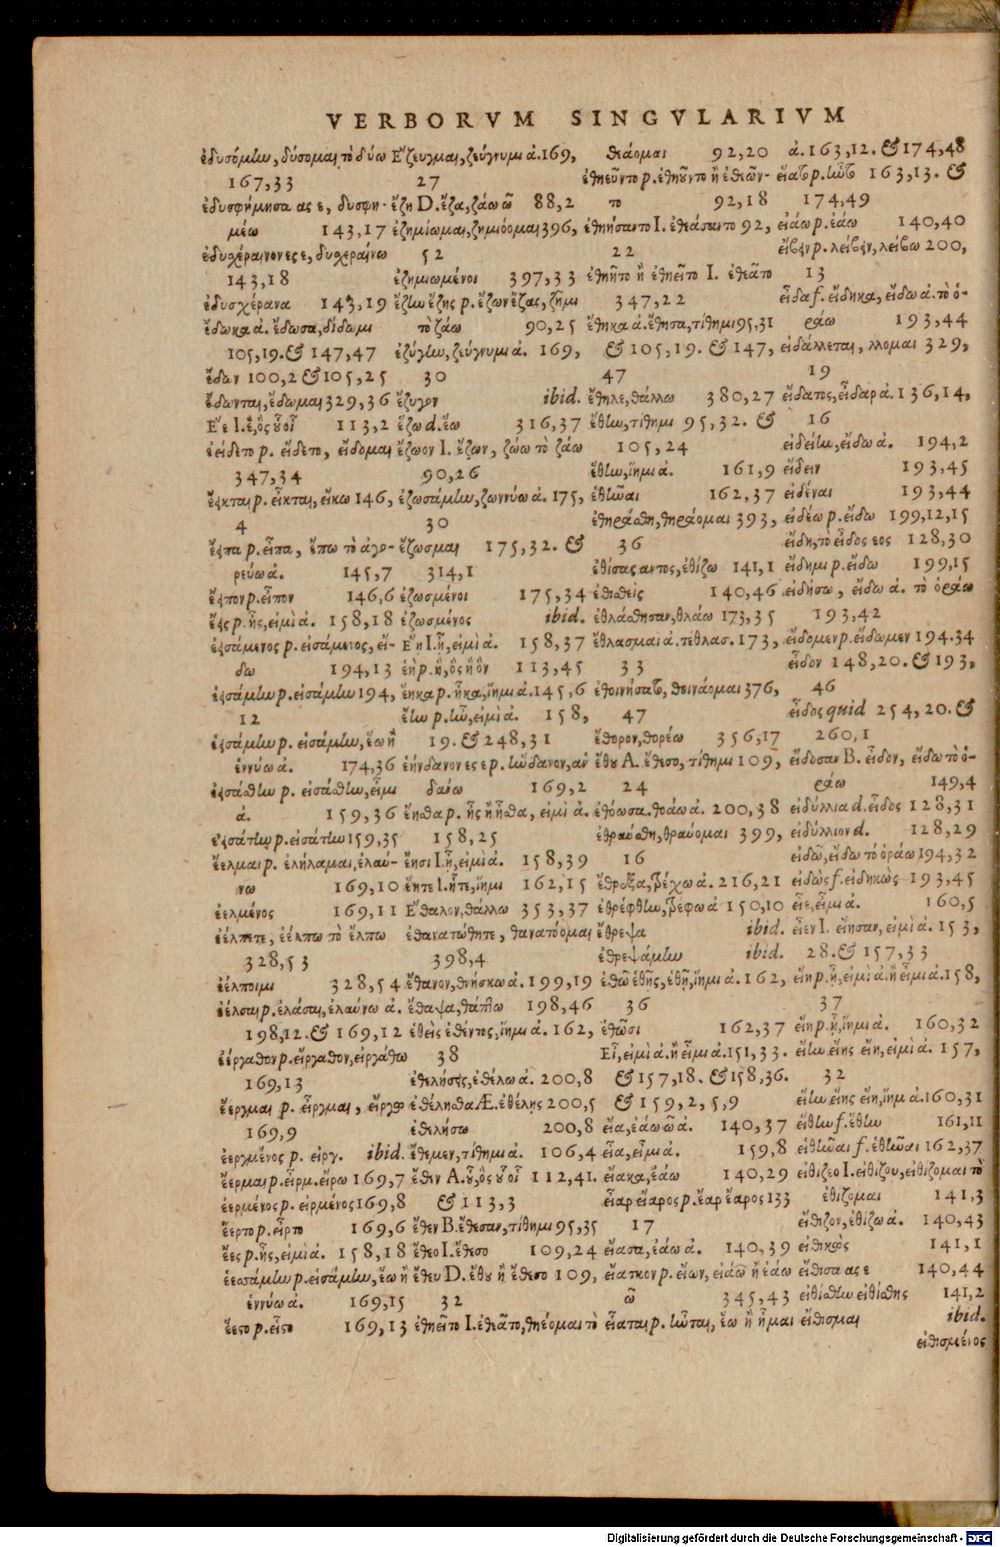 VERBORVM SINGVLARIVM
ἐδυσόμην, δύσομαι τὸ δύω
167,33
ἐδυσφήμησα ας ε, δυσφη-
μέω 143,17
ἐδυχέραινον ες ε, δυχεραίνω
143,18
ἐδυσχέρανα 143,19
ἔδωκα ἀ. ἔδωσα, δίδωμι
105,19. & 147,47
ἔδων 100,2 & 105,25
ἔδωνται, ἔδωμαι 329,36
Ἕε I. ἕ, ὃς οὗ οἷ 113,2
ἐείδετο p. εἴδετο, εἴδομαι
347,34
ἔεικται p. εἶκται, εἴκω 146,
4
ἔειπα p. εἶπα, ἔπω τὸ ἀγο-
ρεύω ἀ. 145,7
ἔειπον p. εἶπον 146,6
ἔεις p. ἦς, εἰμὶ ἀ. 158,18
ἐεισάμενος p. εἰσάμενος, εἴ-
δω 194,13
ἐεισάμην p. εἰσάμην 194,
12
ἐεισάμην p. εἰσάμην, ἕω ἢ
ἑννύω ἀ. 174,36
ἐεισάσθην p. εἰσάσθην, εἶμι
ἀ. 159,36
ἐεισάτην p. εἰσάτην 159,35
ἐέλμαι p. ἐλήλαμαι, ἐλαύ-
νω 169,10
ἐελμένος 169,11
ἐέλπετε, ἐέλπω τὸ ἔλπω
328,53
ἐέλποιμι 328,54
ἐέλσαι p. ἐλάσαι, ἐλαύνω ἀ.
198,12. & 169,12
ἐέργαθον p. εἴργαθον, εἰργάθω
169,13
ἔεργμαι p. εἶργμαι, εἴργω
169,9
ἐεργμένος p. εἰργ. ibid.
ἔερμαι p. εἶρμ. εἴρω 169,7
ἐερμένος p. εἰρμένος 169,8
ἔερτο p. εἶρτο 169,6
ἔες p. ἦς, εἰμὶ ἀ. 158,18
ἐεσάμην p. ἑσάμην, ἕω ἢ
ἑννύω ἀ. 169,15
ἕεστο p. εἷστο 169,13
Ἔζευγμαι, ζεύγνυμι ἀ. 169,
27
ἔζη D. ἔζα, ζάω ῶ 88,2
ἐζημίωμαι, ζημιόομαι 396,
52
ἐζημιωμένοι 397,33
ἔζην ἔζης p. ἔζων ἔζας, ζῆμι
τὸ ζάω 90,25
ἐζύγην, ζεύγνυμι ἀ. 169,
30
ἔζυγον ibid.
ἕζω d. ἕω 316,37
ἔζωον I. ἔζων, ζώω τὸ ζάω
90,26
ἐζωσάμην, ζωννύω ἀ. 175,
30
ἔζωσμαι 175,32. &
314,1
ἐζωσμένοι 175,34
ἐζωσμένος ibid.
Ἔη I. ἦ, εἰμὶ ἀ. 158,37
ἑὴ p. ἣ, ὃς ἣ ὃν 113,45
ἕηκα p. ἧκα, ἵημι ἀ. 145,6
ἔην p. ἦν, εἰμὶ ἀ. 158,
19. & 248,31
ἑήνδανον ες ε p. ἥνδανον, ἁν
δάνω 169,2
ἔησθα p. ἦς ἢ ἦσθα, εἰμὶ ἀ.
158,25
ἔησι I. ᾖ, εἰμὶ ἀ. 158,39
ἕητε I. ἧτε, ἵημι 162,15
Ἔθαλον, θάλλω 353,37
ἐθανατώθητε, θανατόομαι
398,4
ἔθανον, θνήσκω ἀ. 199,19
ἔθαψα, θάπτω 198,46
ἑθεὶς ἑθέντος, ἵημι ἀ. 162,
38
ἐθελήσεις, ἐθέλω ἀ. 200,8
ἐθέλησθα Æ. ἐθέλης 200,5
ἐθελήσω 200,8
ἔθεμεν, τίθημι ἀ. 106,4
ἕθεν A. οὗ, ὃς οὗ οἷ 112,41.
& 113,3
ἔθεν B. ἔθεσαν, τίθημι 95,35
ἔθεο I. ἔθεσο 109,24
ἔθευ D. ἔθου ἢ ἔθεσο 109,
32
ἐθηεῖτο I. ἐθεᾶτο, θηέομαι τὸ
θεάομαι 92,20
ἐθηεῦντο p. ἐθηοῦντο ἢ ἐθεῶν-
το 92,18
ἐθηήσαντο I. ἐθεάσαντο 92,
22
ἐθηῆτο ἢ ἐθηεῖτο I. ἐθεᾶτο
347,22
ἔθηκα ἀ. ἔθησα, τίθημι 95,31
& 105,19. & 147,
47
ἔθηλε, θάλλω 380,27
ἔθην, τίθημι 95,32. &
105,24
ἕθην, ἵημι ἀ. 161,9
ἑθῆναι 162,37
ἐθηράθη, θηράομαι 393,
36
ἐθίσας αντος, ἐθίζω 141,1
ἐθισθεὶς 140,46
ἐθλάσθησαν, θλάω 173,35
ἔθλασμαι ἀ. τέθλασ. 173,
33
ἐθοινήσατο, θοινάομαι 376,
47
ἔθορον, θορέω 356,17
ἔθου A. ἔθεσο, τίθημι 109,
24
ἐθόωσα, θοάω ἀ. 200,38
ἐθραύσθη, θραύομαι 399,
16
ἔθρεξα, τρέχω ἀ. 216,21
ἐθρέφθην, τρέφω ἀ 150,10
ἔθρεψα ibid.
ἐθρεψάμην ibid.
ἑθῶ ἑθῇς, ἑθῇ, ἵημι ἀ. 162,
36
ἑθῶσι 162,37
Εἶ, εἰμὶ ἀ. ἢ εἶμι ἀ. 151,33.
& 157,18. & 158,36.
& 159,2,5,9
εἴα, ἐάω ῶ ἀ. 140,37
εἶα, εἶμι ἀ. 159,8
εἴακα, ἐάω 140,29
εἶαρ εἴαρος p. ἔαρ ἔαρος 133
17
εἴασα, ἐάω ἀ. 140,39
εἴασκον p. εἴων, εἰάω ἢ ἐάω
ῶ 345,43
εἵαται p. ἧνται, ἕω ἢ ἧμαι
ἀ. 163,12. & 174,48
εἵατο p. ἧντο 163,13. &
174,49
εἰάω p. ἐάω 140,40
εἴβειν p. λείβειν, λείβω 200,
13
εἶδα f. εἴδηκα, εἴδω ἀ. τὸ ὁ-
ράω 193,44
εἰδάλλεται, λλομαι 329,
19
εἴδατος, εἶδαρ ἀ. 136,14,
16
εἰδείην, εἴδω ἀ. 194,2
εἴδειν 193,45
εἰδέναι 193,44
εἰδέω p. εἴδω 199,12,15
εἴδη, τὸ εἶδος εος 128,30
εἴδημι p. εἴδω 199,15
εἰδήσω, εἴδω ἀ. τὸ ὁράω
193,42
εἴδομεν p. εἴδωμεν 194.34
εἶδον 148,20. & 193,
46
εἶδος quid 254,20. &
260,1
εἴδοσαν B. εἶδον, εἴδω τὸ ὁ-
ράω 149,4
εἰδύλλια d. εἶδος 128,31
εἰδύλλιον d. 128,29
εἰδῶ, εἴδω τὸ ὁράω 194,32
εἰδὼς f. εἰδηκὼς 193,45
εἶε, εἶμι ἀ. 160,5
εἶεν I. εἴησαν, εἰμὶ ἀ. 153,
28. & 157,33
εἴη p. ᾖ, εἰμὶ ἀ. ἢ εἶμι ἀ. 158,
37
εἵη p. ᾗ, ἵημι ἀ. 160,32
εἴην εἴης εἴη, εἰμὶ ἀ. 157,
32
εἵην εἵης εἵη, ἵημι ἀ. 160,31
εἵθην f. ἕθην 161,11
εἱθῆναι f. ἑθῶσι 162,37
εἰθίζεο I. εἰθίζου, εἰθίζομαι τὸ
ἐθίζομαι 141,3
εἴθιζον, ἐθίζω ἀ. 140,43
εἰθικὼς 141,1
εἴθισα ας ε 140,44
εἰθίσθην εἰθίσθης 141,2
εἴθισμαι ibid.
εἰθισμένος
Digitalisierung gefördert durch die Deutsche Forschungsgemeinschaft - DFG